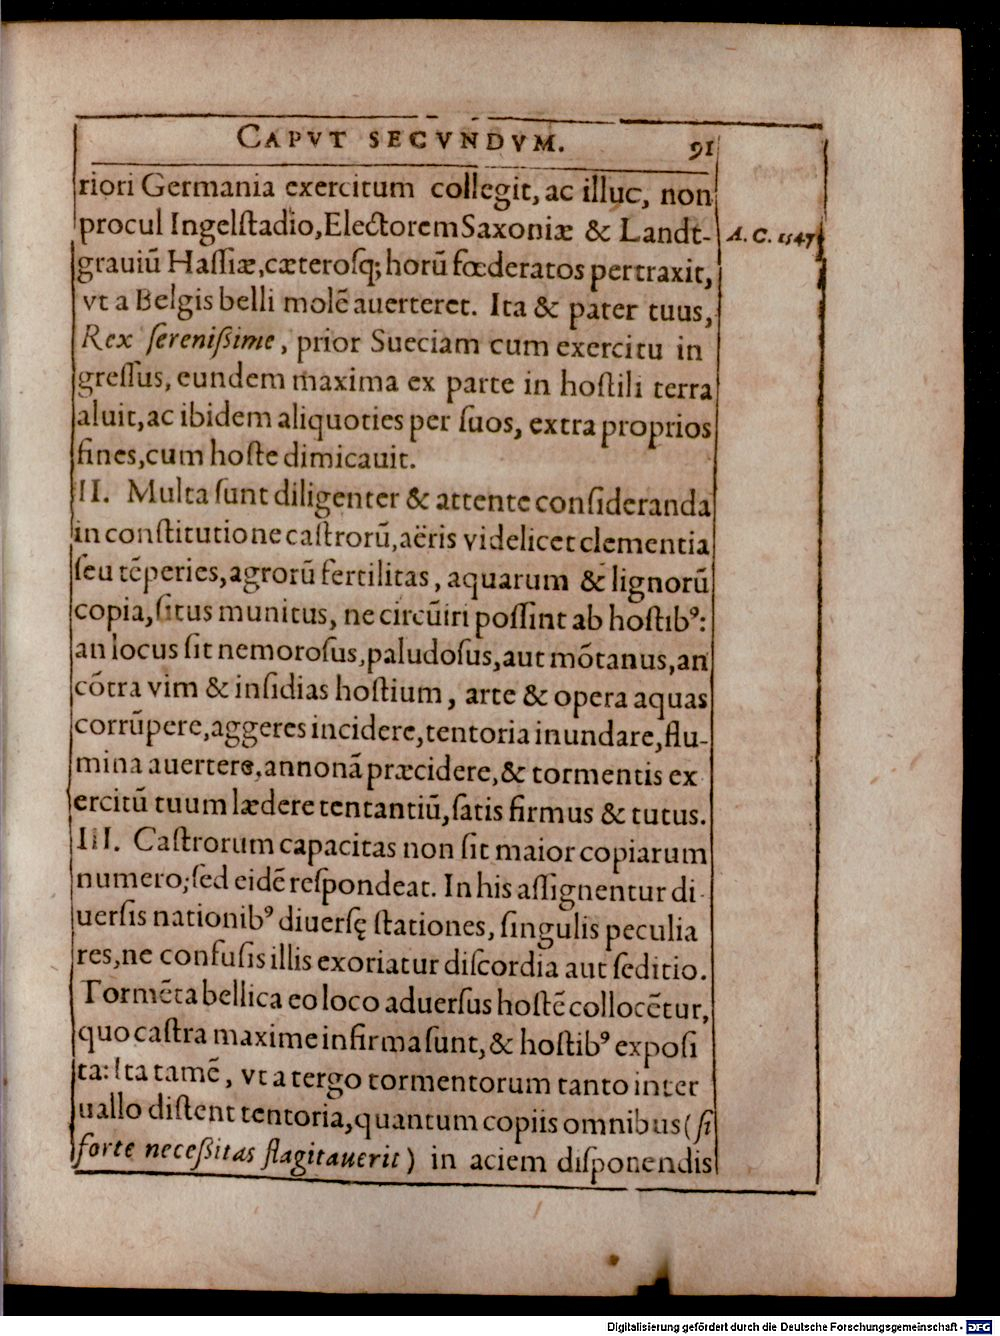 CAPVT SECVNDVM. 91
riori Germania exercitum collegit, ac illuc, non
procul Ingelſtadio, Electorem Saxoniæ & Landt-
A. C. 1547
grauiū Haſſiæ, cæteroſq; horū fœderatos pertraxit,
vt a Belgis belli molē auerteret. Ita & pater tuus,
Rex ſereniſſime, prior Sueciam cum exercitu in
greſſus, eundem maxima ex parte in hoſtili terra
aluit, ac ibidem aliquoties per ſuos, extra proprios
fines, cum hoſte dimicauit.
II. Multa ſunt diligenter & attente conſideranda
in conſtitutione caſtrorū, aëris videlicet clementia
ſeu tēperies, agrorū fertilitas, aquarum & lignorū
copia, ſitus munitus, ne circūiri poſſint ab hoſtibꝰ:
an locus ſit nemoroſus, paludoſus, aut mōtanus, an
cōtra vim & inſidias hoſtium, arte & opera aquas
corrūpere, aggeres incidere, tentoria inundare, flu-
mina auertere, annonā præcidere, & tormentis ex
ercitū tuum lædere tentantiū, ſatis firmus & tutus.
III. Caſtrorum capacitas non ſit maior copiarum
numero; ſed eidē reſpondeat. In his aſſignentur di-
uerſis nationibꝰ diuerſę ſtationes, ſingulis peculia
res, ne confuſis illis exoriatur diſcordia aut ſeditio.
Tormēta bellica eo loco aduerſus hoſtē collocētur,
quo caſtra maxime infirma ſunt, & hoſtibꝰ expoſi
ta: Ita tamē, vt a tergo tormentorum tanto inter
uallo diſtent tentoria, quantum copiis omnibus (ſi
forte neceſſitas flagitauerit) in aciem diſponendis
Digitalisierung gefördert durch die Deutsche Forschungsgemeinschaft - DFG